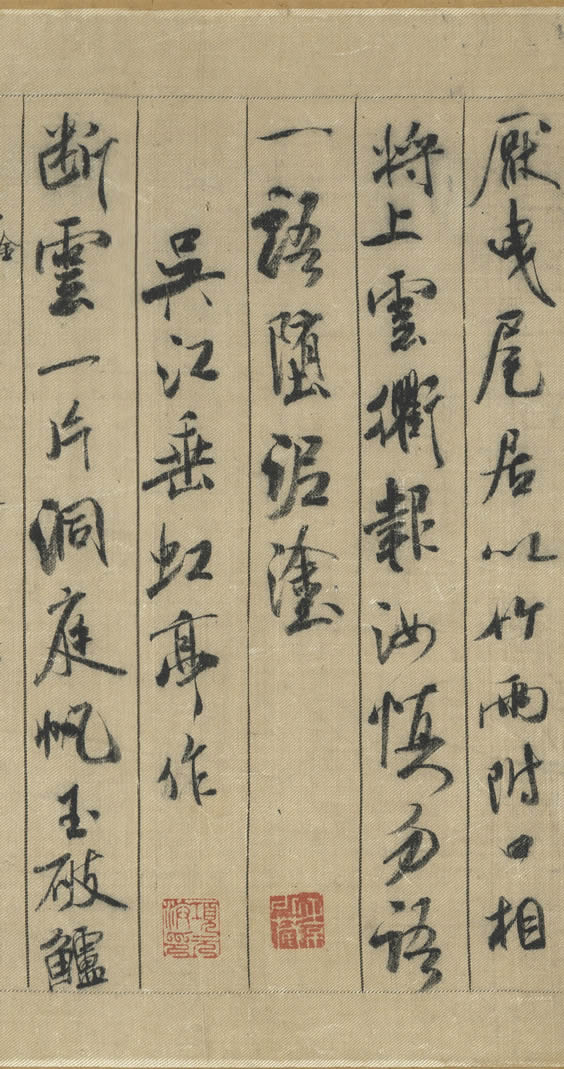 厭曳尾居以竹兩附口相
將上雲衢報汝慎勿語
一語墮泥塗
吳江垂虹亭作
項元汴印
断雲一片洞庭帆玉破鱸